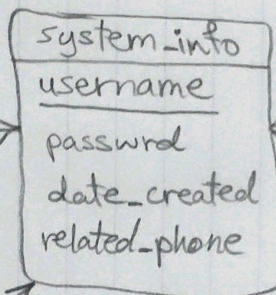 system_info
username
passwrd
date_created
related_phone